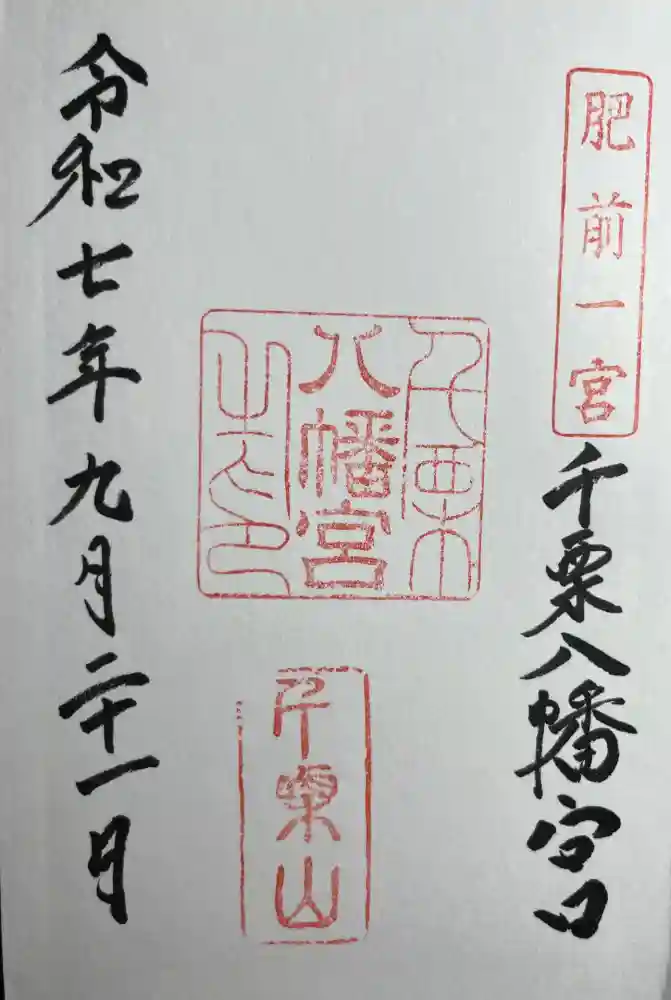 肥前一宮
千栗八幡宮
千栗
八幡宮
之印
千栗山
令和七年九月二十一日